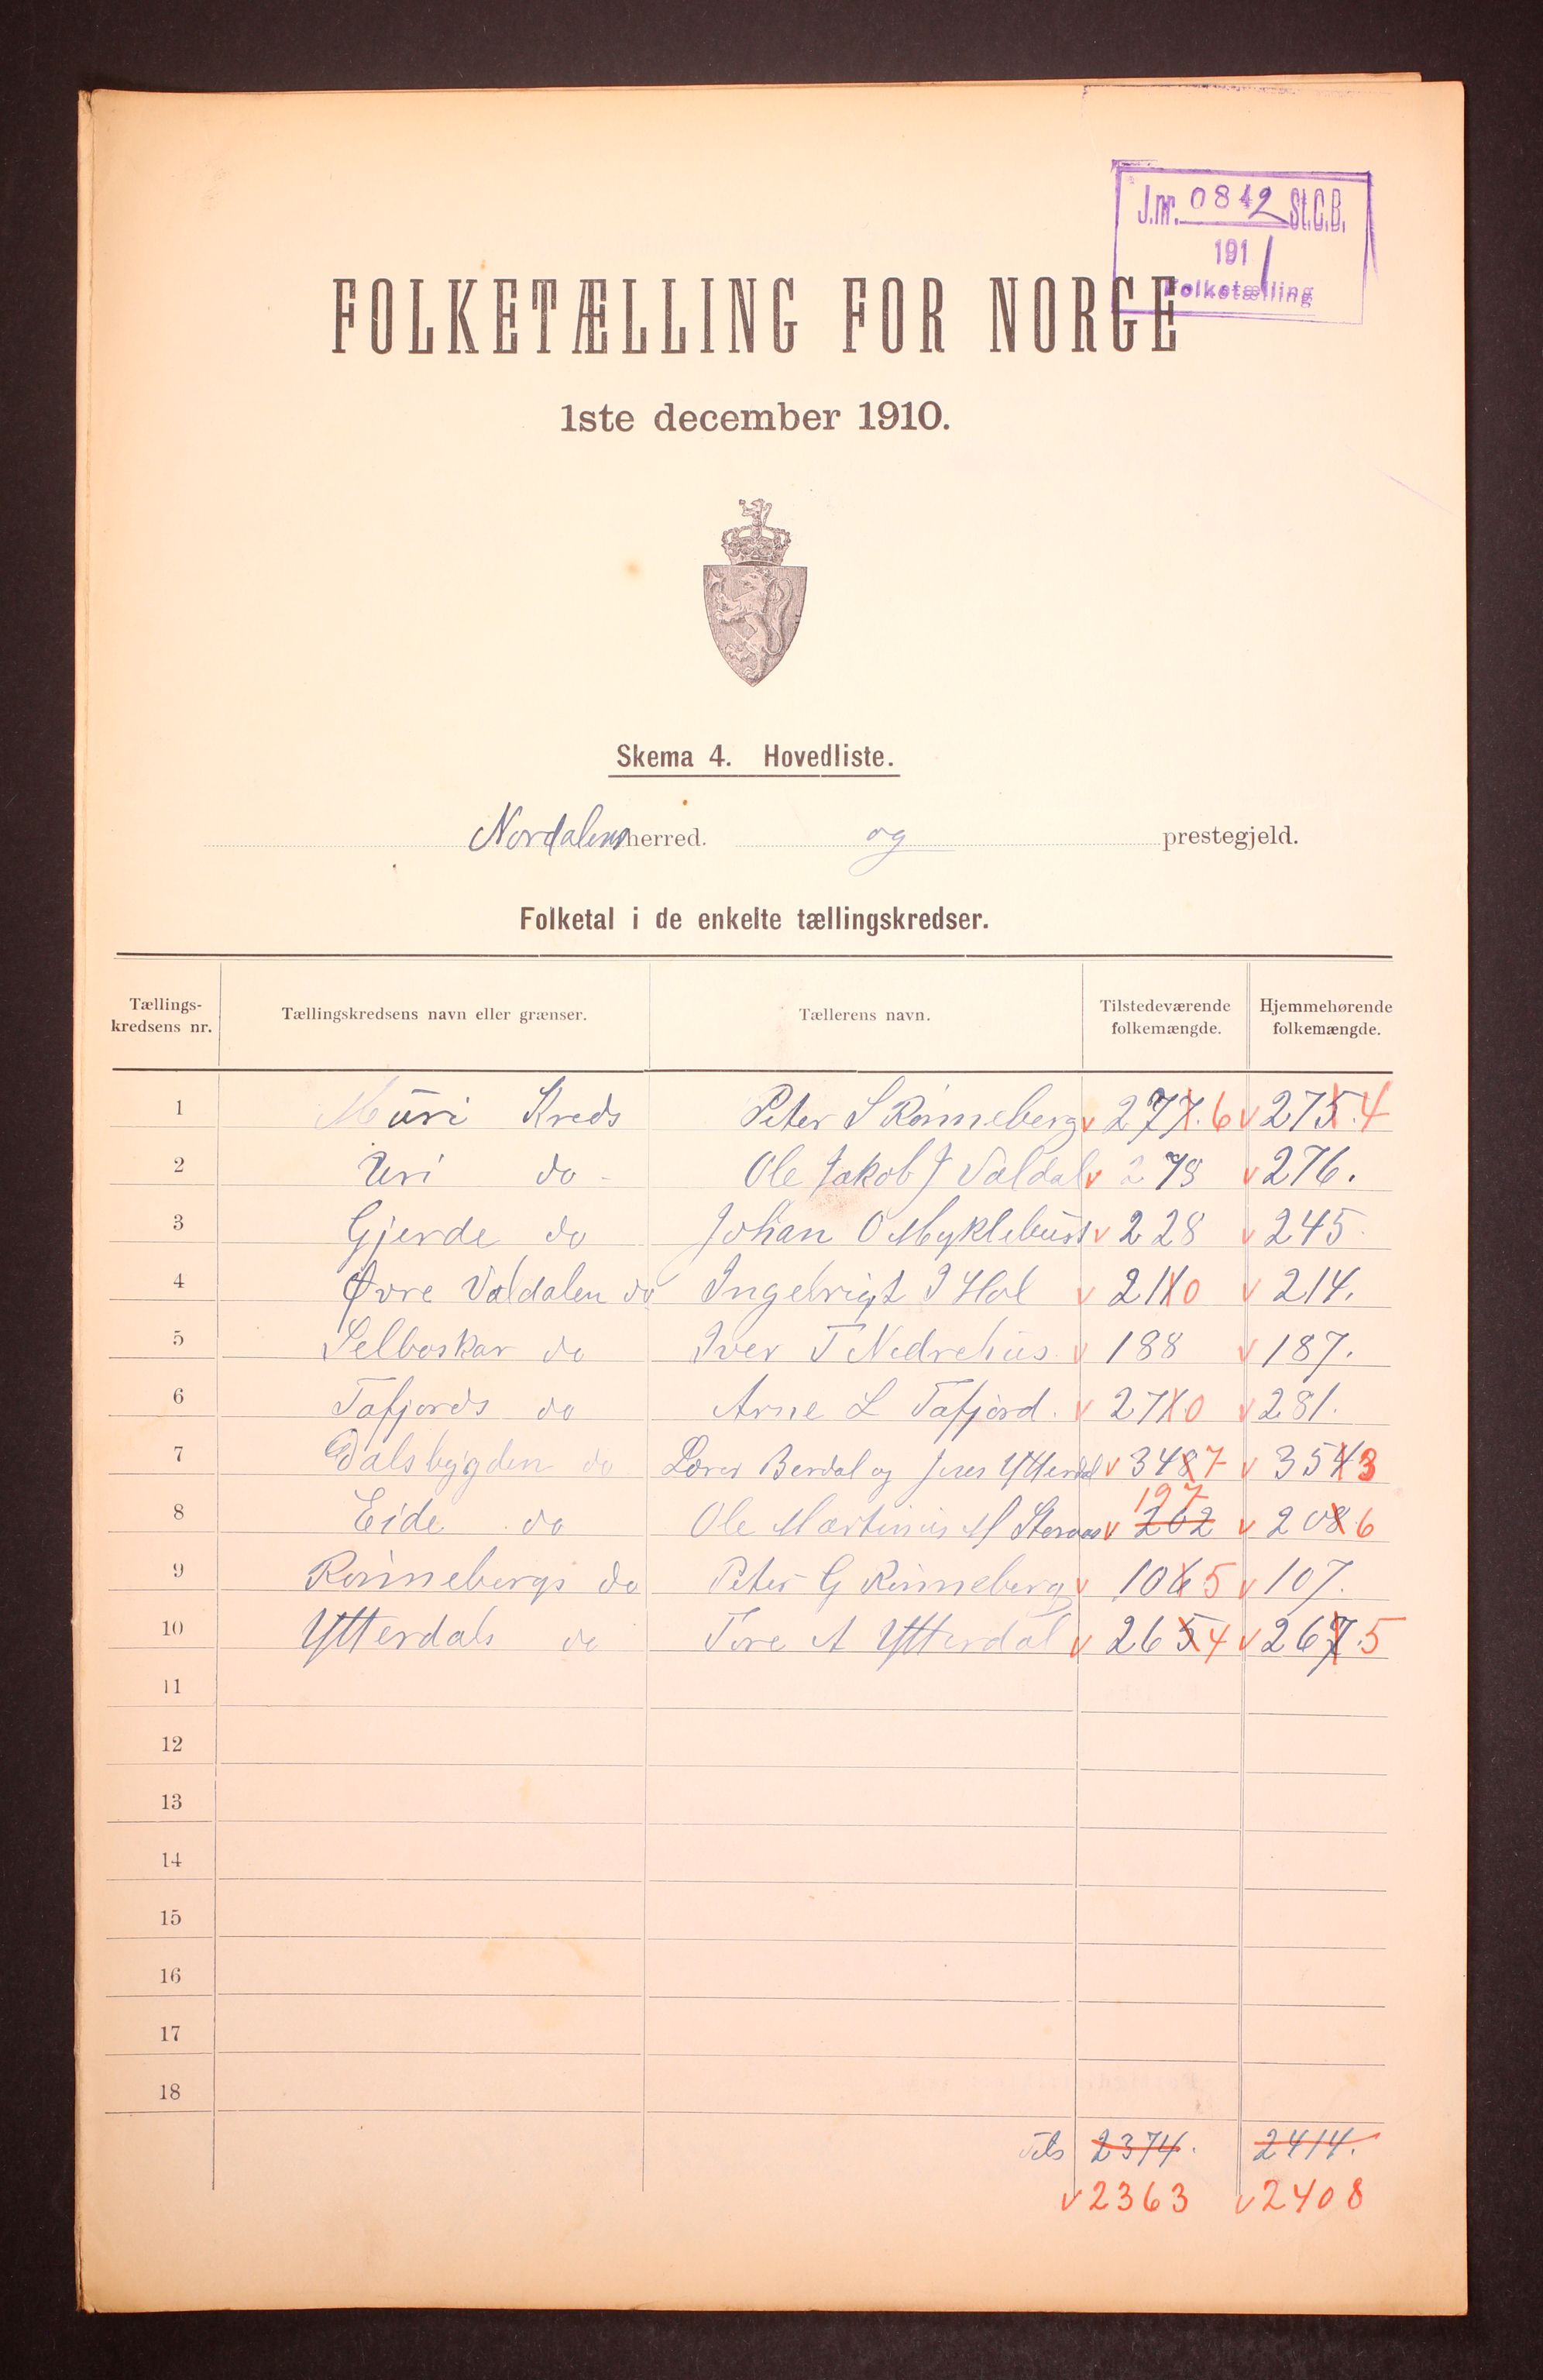 J.nr. 0842 St.C.B.
1911
Folketælling
FOLKETÆLLING FOR NORGE
1ste december 1910.
Skema 4. Hovedliste.
Nordalens herred. og prestegjeld.
Folketal i de enkelte tællingskredser.
Tællings-kredsens nr. Tællingskredsens navn eller grænser. Tællerens navn. Tilstedeværende folkemængde. Hjemmehørende folkemængde.
1 Muri Kreds Peter S Rønneberg v 277. 6 v 275. 4
2 Uri do - Ole Jakob J Valdal v 278 v 276.
3 Gjerde do Johan O Myklebust v 228 v 245
4 Øvre Valdalen do Ingebrigt I Hol v 211 0 v 214.
5 Selboskar do Iver T Nedrehus v 188 v 187.
6 Tafjords do Arne L Tafjord. v 271 0 v 281.
7 Dalsbygden do Berdal og Ytterdal v 348 7 v 354 3
8 Eide do Ole Martinius M v 202 197 v 208 6
9 Rønnebergs do Peter G Rønneberg v 106 5 v 107.
10 Ytterdals do Tore A Ytterdal v 265 4 v 267. 5
11
12
13
14
15
16
17
18
Tils 2374. 2414.
v 2363 v 2408